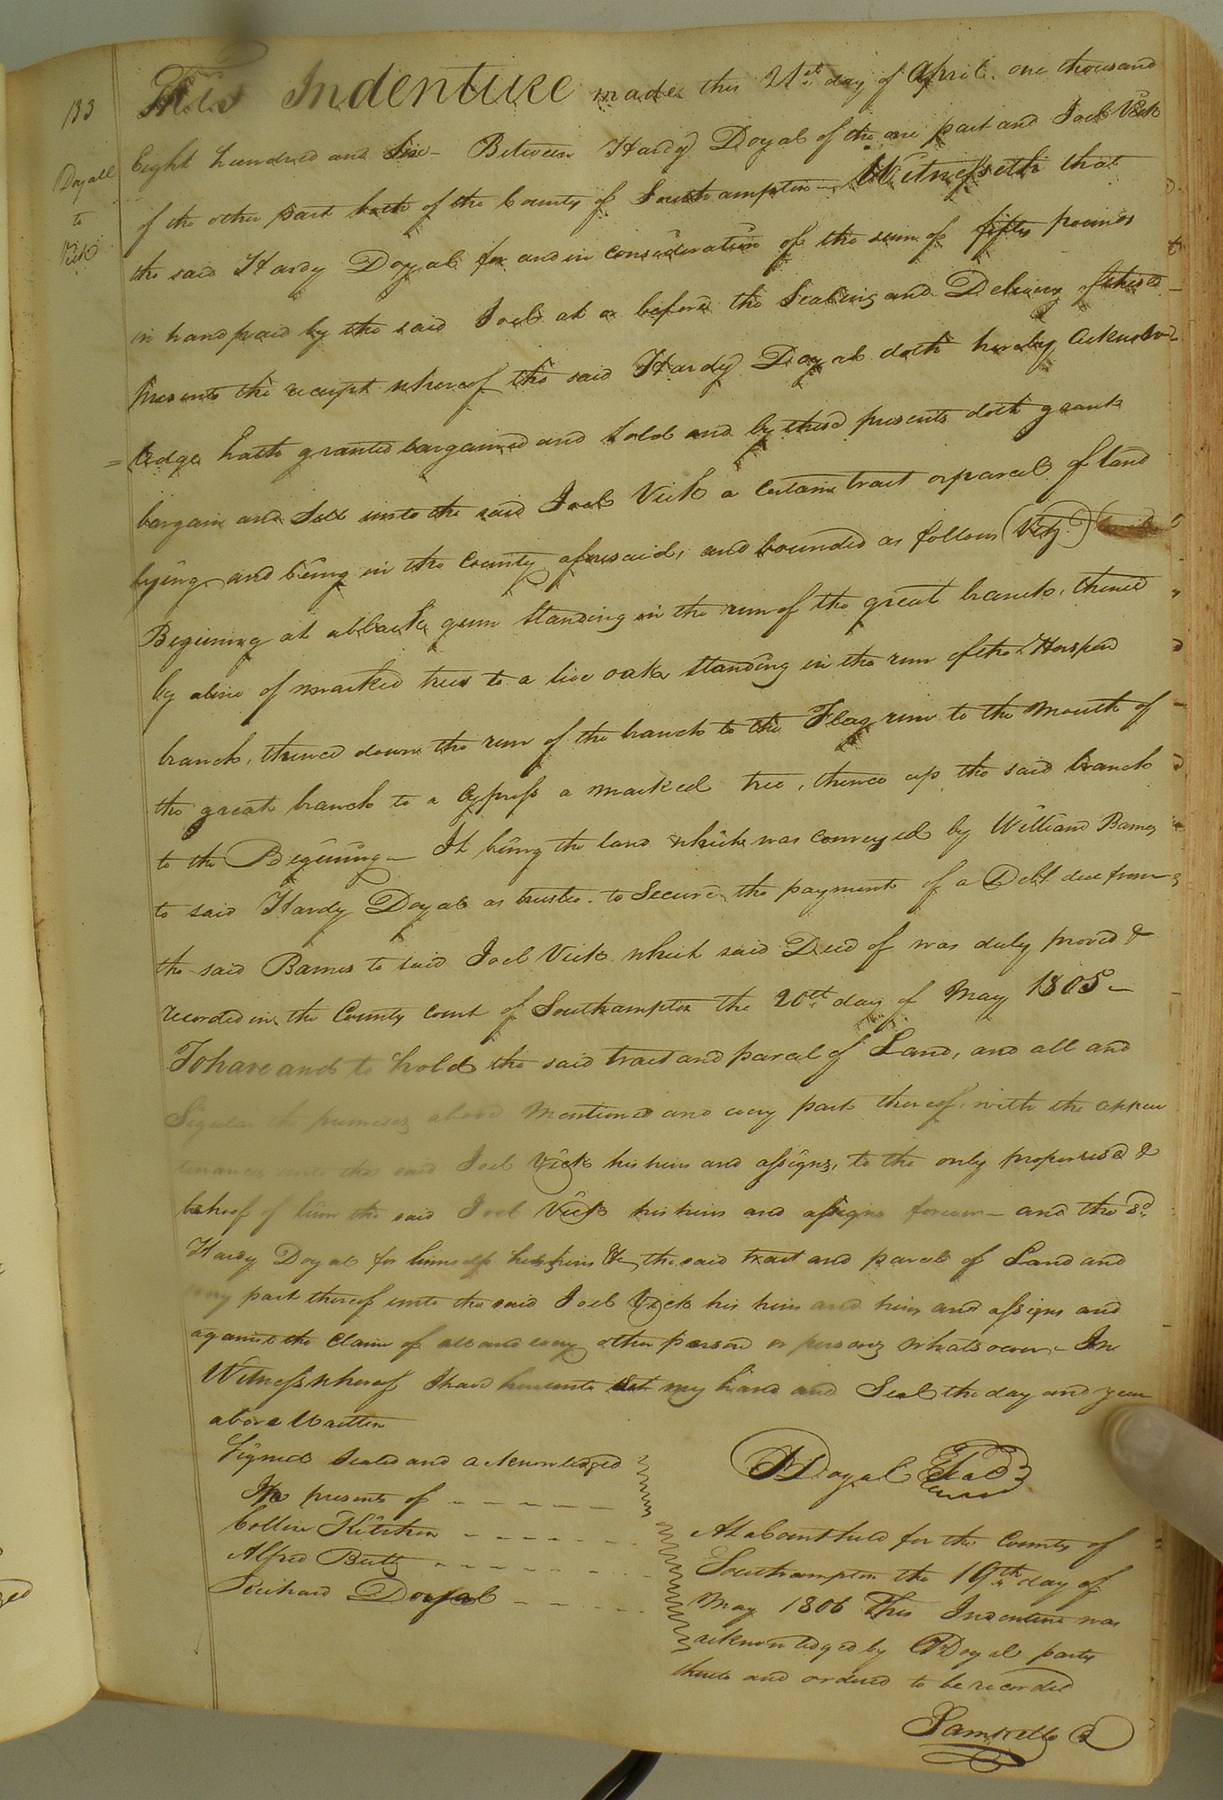 133
Doyall
to
Vick
This Indenture made this 21st day of April one thousand
Eight hundred and Six - Between Hardy Doyal of the one part and Joel Vick
of the other part both of the County of Southampton - Witnesseth that
the said Hardy Doyal for and in consideration of the sum of fifty pounds
in hand paid by the said Joel at or before the Sealing and Delivery of these
presents the receipt whereof the said Hardy Doyal doth hereby acknow
=ledge hath granted bargained and sold and by these presents doth grant
bargain and Sell unto the said Joel Vick a certain tract or parcel of land
lying and being in the County aforesaid, and bounded as follows (Vitz.)
Begining at a black gum standing in the run of the great branch, thence
by a line of marked trees to a live oak standing in the run of the Horspen
branch, thence down the run of the branch to the Flag run to the mouth of
the great branch to a Cypress a marked tree, thence up the said branch
to the Begining - It being the land which was conveyed by William Barnes
to said Hardy Doyal as trustee to Secure the payment of a Debt due from
the said Barnes to said Joel Vick which said Deed of was duly proved &
recorded in the County court of Southampton the 20th day of May 1805 -
To have and to hold the said tract and parcel of Land, and all and
Sigular the premises above Mentioned and every part thereof, with the appur
tenances unto the said Joel Vick his heirs and assigns, to the only proper use &
behoof of him the said Joel Vick his heirs and assigns forever - and the sd.
Hardy Doyal for himself his heirs &c the said tract and parcel of Land and
every part thereof unto the said Joel Vick his heirs and heirs and assigns and
against the claim of all and every other person or persons whatsoever - In
Witness whereof I have hereunto Set my hand and Seal the day and year
above Written
Signed Sealed and acknowledged
In presents of
Collin Kitchen
Alfred Butts
Doyal
H Doyal Seal
At a Court held for the County of
Southampton the 19th day of
May 1806 This Indenture was
acknowledged by H Doyal party
thereto and ordered to be recorded
Sam Kello C